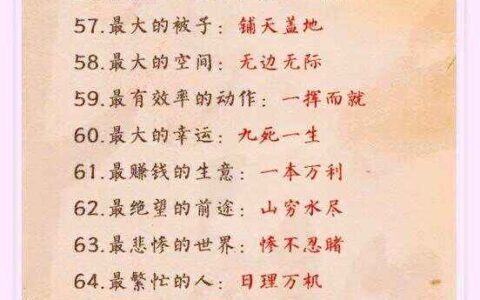 57.最大的被子：铺天盖地
58.最大的空间：无边无际
59.最有效率的动作：一挥而就
60.最大的幸运：九死一生
61.最赚钱的生意：一本万利
62.最绝望的前途：山穷水尽
63.最悲惨的世界：惨不忍睹
64.最繁忙的人：日理万机